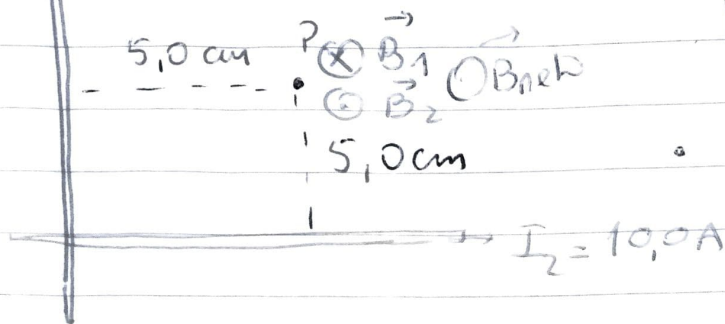 5,0 cm P ⊗ B⃗1 ⊙ B⃗net
⊙ B⃗2
5,0cm
I2 = 10,0A